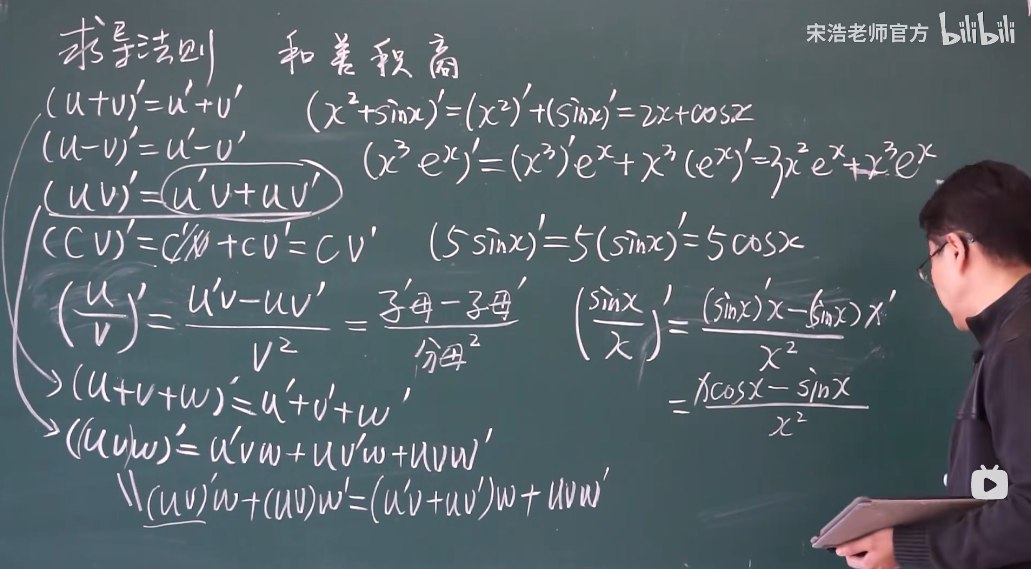 宋浩老师官方 bilibili
求导法则 和差积商
(u+v)'=u'+v' (x²+sinx)'=(x²)'+(sinx)'=2x+cosx
(u-v)'=u'-v' (x³eˣ)'=(x³)'eˣ+x³(eˣ)'=3x²eˣ+x³eˣ
(uv)'=u'v+uv'
(Cv)'=C'v+Cv'=Cv' (5sinx)'=5(sinx)'=5cosx
(u/v)'=(u'v-uv')/v²=(子'母-子母')/分母² (sinx/x)'=((sinx)'x-(sinx)x')/x²
(u+v+w)'=u'+v'+w' =(xcosx-sinx)/x²
((uv)w)'=u'vw+uv'w+uvw'
\\(uv)'w+(uv)w'=(u'v+uv')w+uvw'